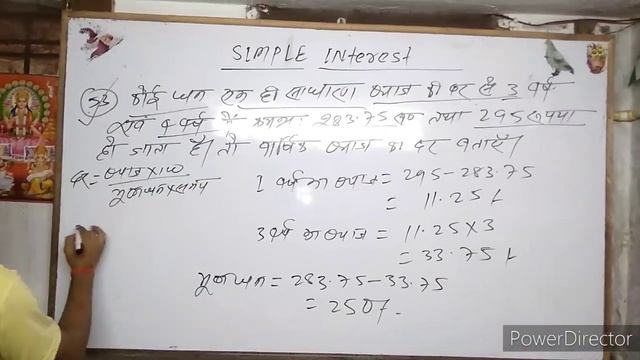 SIMPLE Interest
53 कोई धन एक ही साधारण ब्याज की दर से 3 वर्ष
एवं 4 वर्ष में क्रमशः 283.75 रु० तथा 295 रुपया
हो जाता है। तो वार्षिक ब्याज का दर बताएँ।
दर = ब्याज × 100 / मूलधन × समय
1 वर्ष का ब्याज = 295 - 283.75
= 11.25 /-
3 वर्ष का ब्याज = 11.25 × 3
= 33.75 /-
मूलधन = 283.75 - 33.75
= 250 /-
PowerDirector